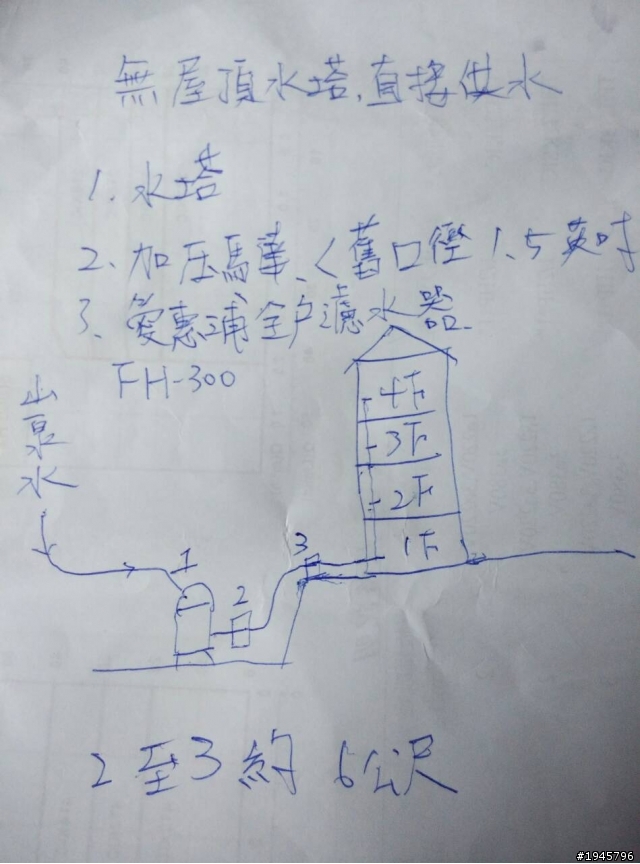 無屋頂水塔,直接供水
1. 水塔
2、加压馬達、<舊口徑 1.5英吋
3、愛惠浦全户濾水器
FH-300
山泉水
4F
3F
2F
1F
1
2
3
2 至 3 約 6公尺
#1945796